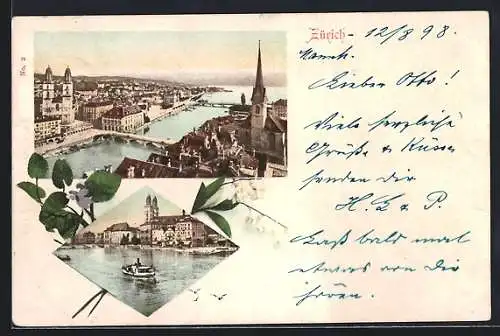 No. 2
Zürich - 12/8 98.
Lieber Otto!
Viele herzliche
Grüße & Küsse
senden dir
H. L & P.
Laß bald mal
etwas von Dir
hören.